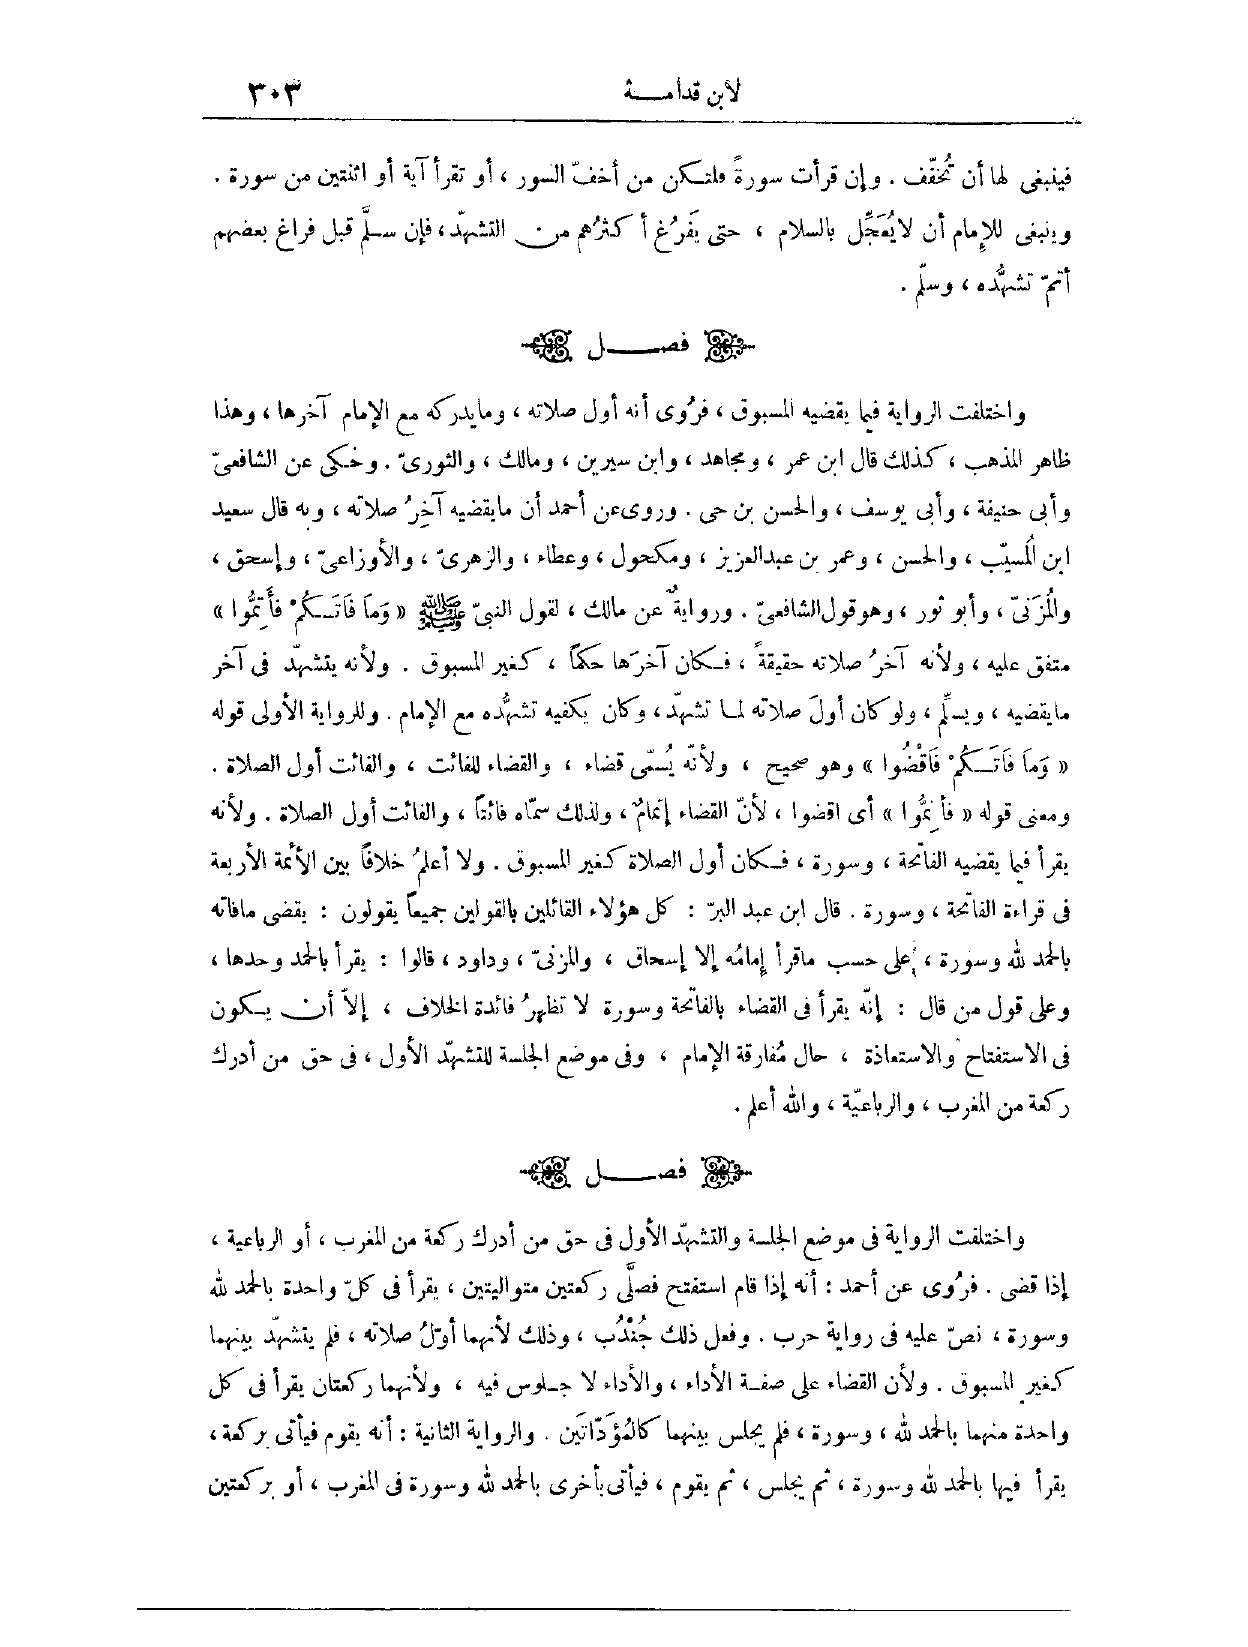 لابن قدامـــة
٣٠٣
فينبغى لها أن تُخفّف . وإن قرأت سورةً فلتكن من أخفّ السور ، أو تقرأ آية أو اثنتين من سورة .
وينبغى للإمام أن لايُعَجِّل بالسلام ، حتى يَفرُغ أكثرُهم من التشهّد، فإن سلَّم قبل فراغ بعضهم
أتمّ تشهُّده ، وسلّم .
فصــــل
واختلفت الرواية فيما يقضيه المسبوق ، فرُوى أنه أول صلاته ، ومايدركه مع الإمام آخرها ، وهذا
ظاهر المذهب ، كذلك قال ابن عمر ، ومجاهد ، وابن سيرين ، ومالك ، والثورىّ . وحُكى عن الشافعىّ
وأبى حنيفة ، وأبى يوسف ، والحسن بن حى . وروى عن أحمد أن مايقضيه آخِرُ صلاته ، وبه قال سعيد
ابن المُسيّب ، والحسن ، وعمر بن عبدالعزيز ، ومكحول ، وعطاء ، والزهرىّ ، والأوزاعىّ ، وإسحق ،
والمُزَنىّ ، وأبو ثور ، وهو قول الشافعىّ . وروايةٌ عن مالك ، لقول النبىّ ﷺ « وَمَا فَاتَـكُمْ فَأَتِمُّوا »
متفق عليه ، ولأنه آخرُ صلاته حقيقةً ، فـكان آخرَها حكماً ، كغير المسبوق . ولأنه يتشهّد فى آخر
مايقضيه ، ويسلِّم ، ولو كان أولَ صلاته لمـا تشهّد ، وكان يكفيه تشهُّده مع الإمام . وللرواية الأولى قوله
« وَمَا فَاتَـكُمْ فَاقْضُوا » وهو صحيح ، ولأنّه يُسمّى قضاء ، والقضاء للفائت ، والفائت أول الصلاة .
ومعنى قوله « فأتِمُّوا » أى اقضوا ، لأنّ القضاء إتمامٌ ، ولذلك سمّاه فائتاً ، والفائت أول الصلاة . ولأنه
يقرأ فيما يقضيه الفاتحة ، وسورة ، فـكان أول الصلاة كغير المسبوق . ولا أعلمُ خلافاً بين الأئمة الأربعة
فى قراءة الفاتحة ، وسورة . قال ابن عبد البرّ : كل هؤلاء القائلين بالقولين جميعاً يقولون : يقضى مافاته
بالحمد لله وسورة ، على حسب ماقرأ إمامُه إلا إسحاق ، والمزنىّ ، وداود ، قالوا : يقرأ بالحمد وحدها ،
وعلى قول من قال : إنّه يقرأ فى القضاء بالفاتحة وسورة لا تظهرُ فائدة الخلاف ، إلاّ أن يـكون
فى الاستفتاح والاستعاذة ، حال مُفارقة الإمام ، وفى موضع الجلسة للتشهّد الأول ، فى حق من أدرك
ركعة من المغرب ، والرباعيّة ، والله أعلم .
فصــــل
واختلفت الرواية فى موضع الجلسة والتشهّد الأول فى حق من أدرك ركعة من المغرب ، أو الرباعية ،
إذا قضى . فرُوى عن أحمد : أنه إذا قام استفتح فصلَّى ركعتين متواليتين ، يقرأ فى كلّ واحدة بالحمد لله
وسورة ، نصّ عليه فى رواية حرب . وفعل ذلك جُنْدُب ، وذلك لأنهما أوّلُ صلاته ، فلم يتشهّد بينهما
كغير المسبوق . ولأن القضاء على صفـة الأداء ، والأداء لا جـلوس فيه ، ولأنهما ركعتان يقرأ فى كل
واحدة منهما بالحمد لله ، وسورة ، فلم يجلس بينهما كالمُؤَدّاتَين . والرواية الثانية : أنه يقوم فيأتى بركعة ،
يقرأ فيها بالحمد لله وسورة ، ثم يجلس ، ثم يقوم ، فيأتى بأخرى بالحمد لله وسورة فى المغرب ، أو بركعتين